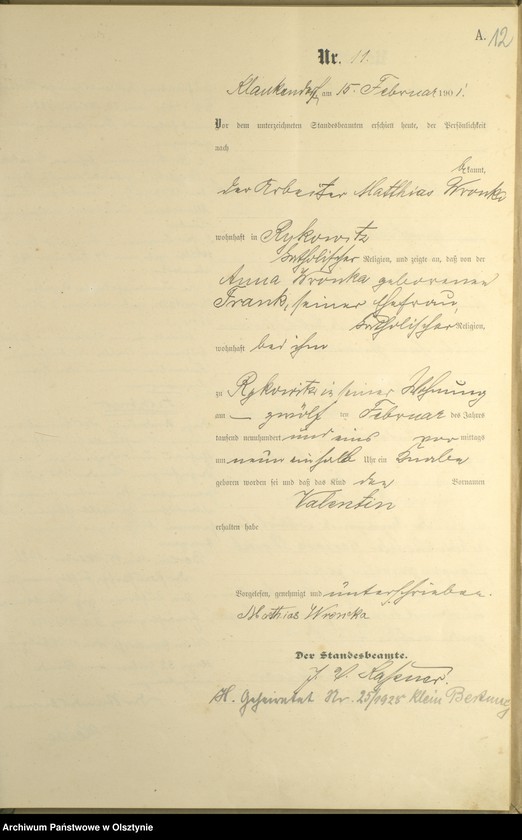 A. 12
Nr. 11.
Klaukendorf, am 15. Februar 1901.
Vor dem unterzeichneten Standesbeamten erschien heute, der Persönlichkeit
nach
bekannt,
der Arbeiter Matthias Wronka
wohnhaft in Rykowitz
katholischer Religion, und zeigte an, daß von der
Anna Wronka geborenen
Frank, seiner Ehefrau,
katholischer Religion,
wohnhaft bei ihm
zu Rykowitz in seiner Wohnung
am — zwölf ten Februar des Jahres
tausend neunhundert und eins vor mittags
um neun einhalb Uhr ein Knabe
geboren worden sei und daß das Kind den Vornamen
Valentin
erhalten habe
Vorgelesen, genehmigt und unterschrieben.
Mathias Wroncka
Der Standesbeamte.
J. V.
H. Geheiratet Nr. 25/1925 Klein Bertung
Archiwum Państwowe w Olsztynie